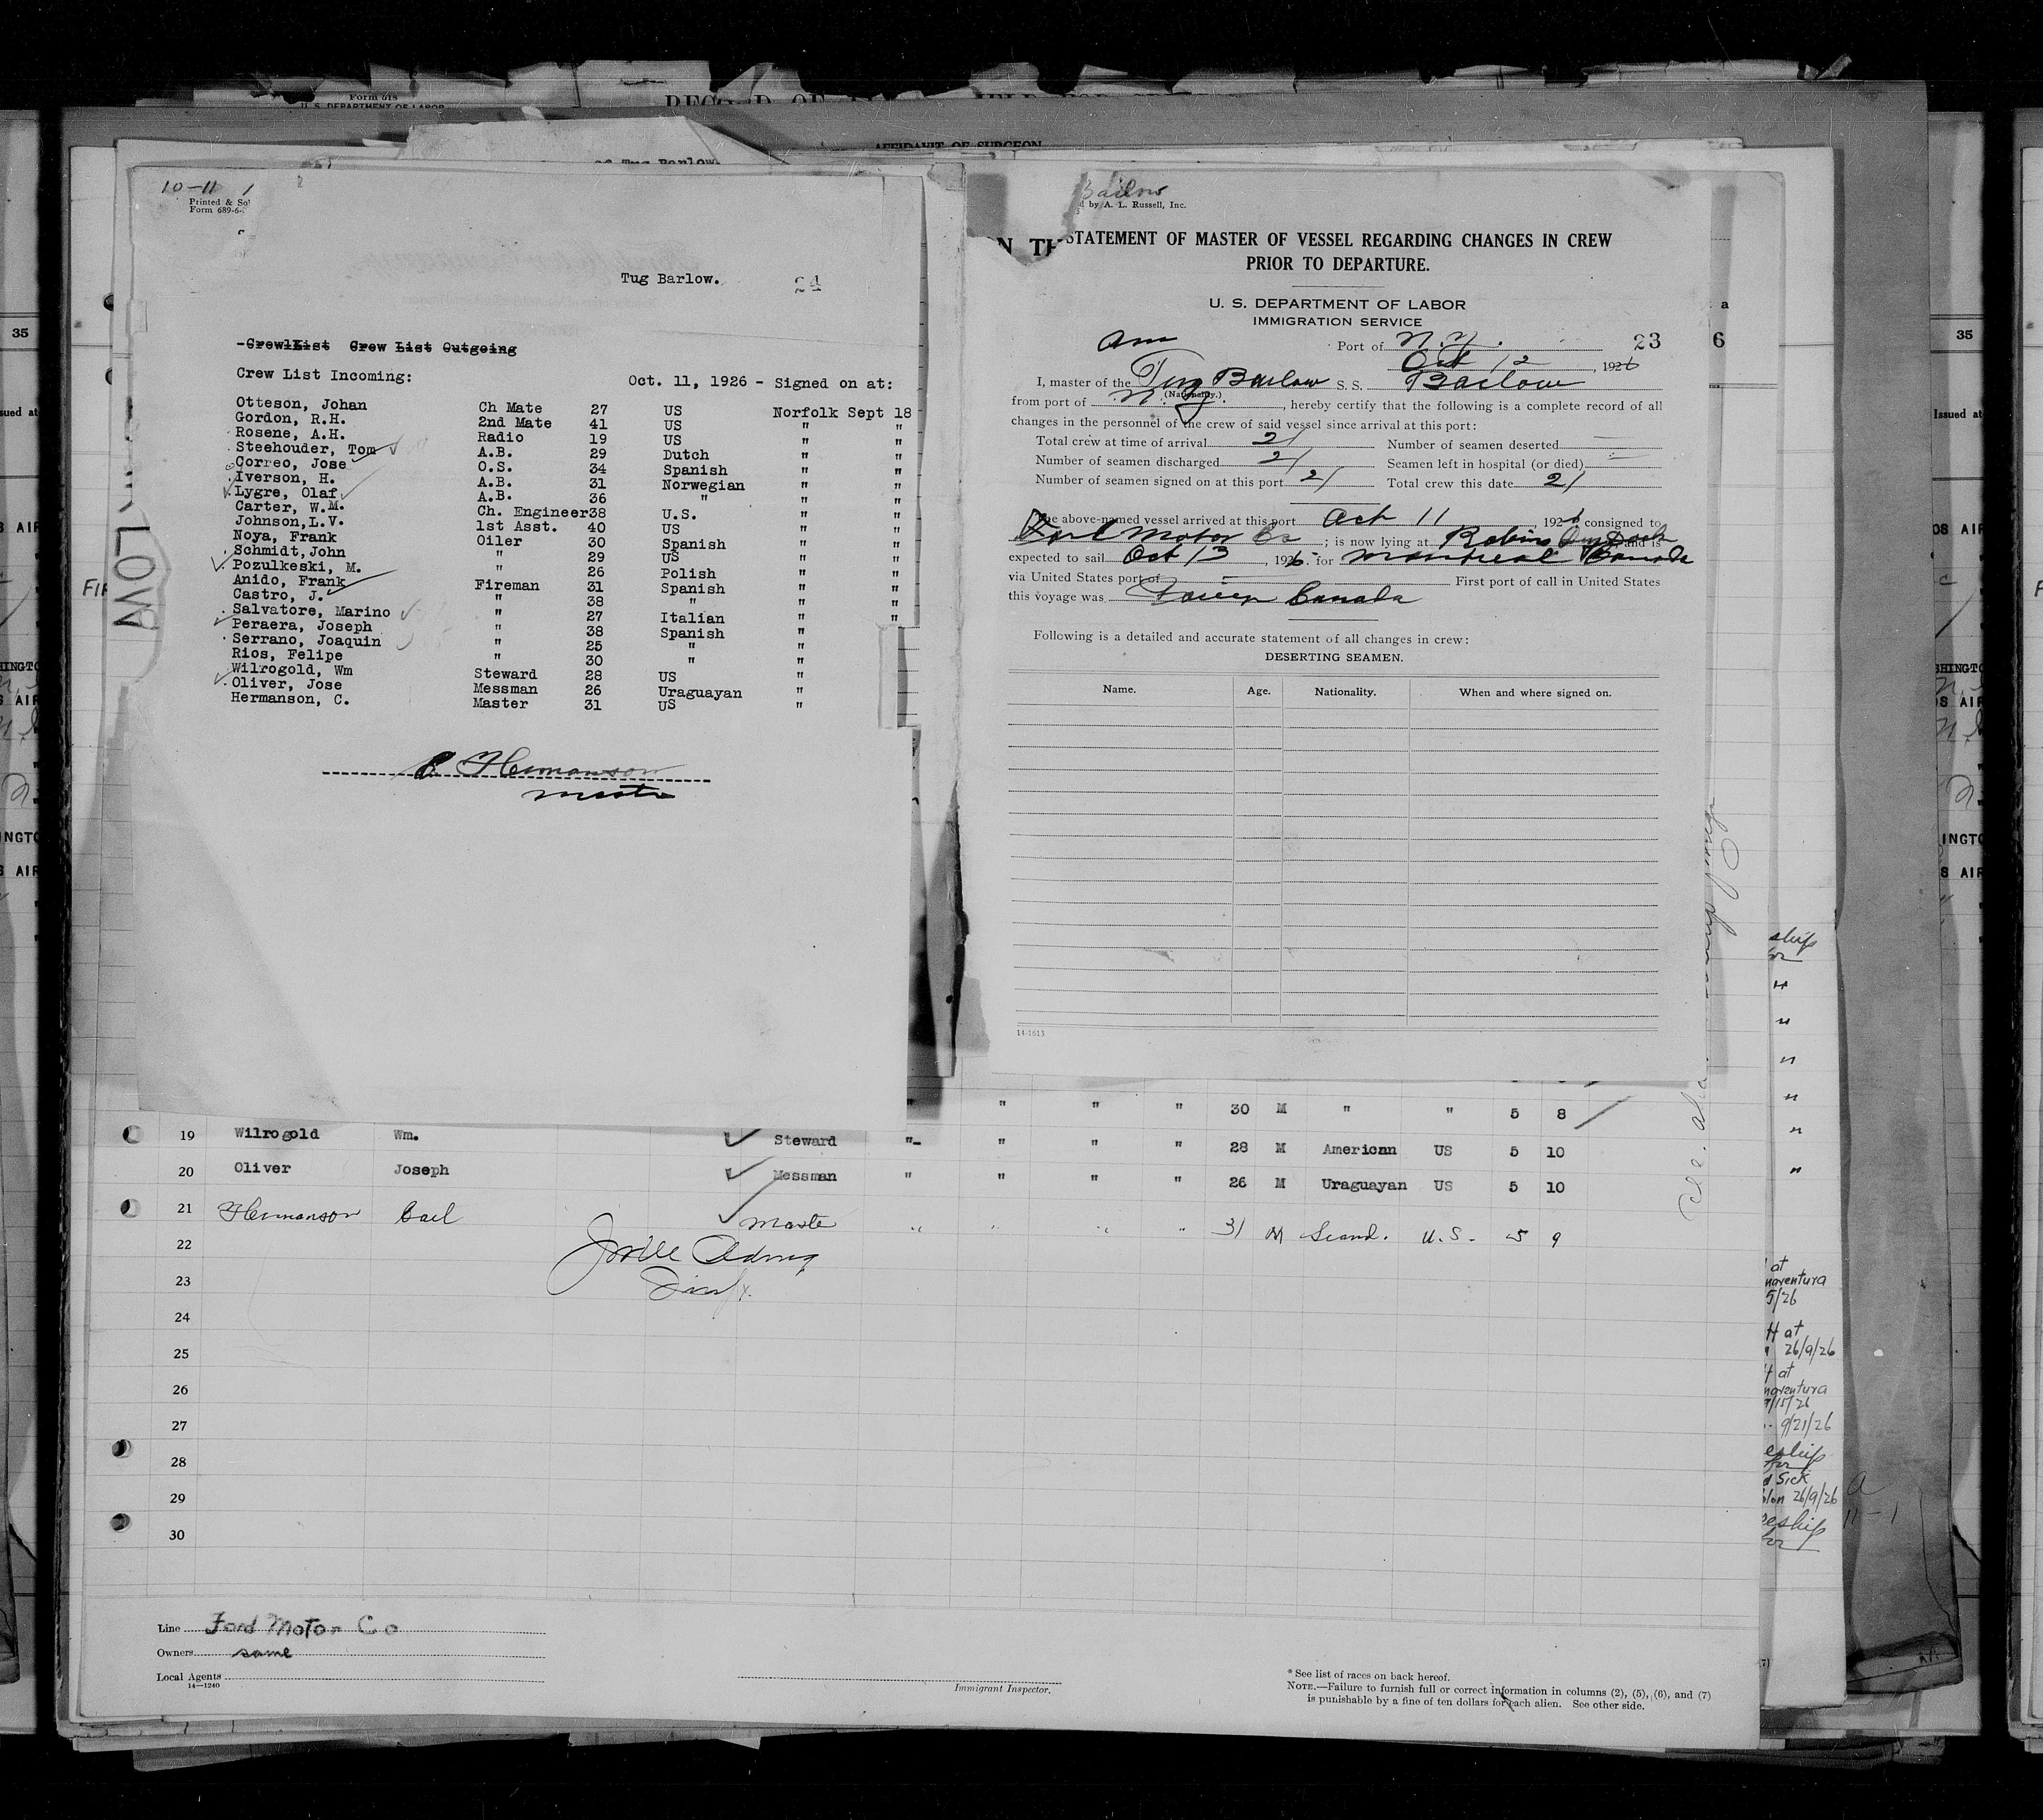 Form 618
U. S. DEPARTMENT OF LABOR
AFFIDAVIT OF SURGEON
Tug Barlow
10-11 1
Printed &
Form 689-6-
Tug Barlow.
24
Crew List Outgoing
Crew List Incoming:
Oct. 11, 1926 - Signed on at:
Otteson, Johan Ch Mate 27 US Norfolk Sept 18
Gordon, R.H. 2nd Mate 41 US " "
Rosene, A.H. Radio 19 US " "
Steehouder, Tom A.B. 29 Dutch " "
Correo, Jose O.S. 34 Spanish " "
Iverson, H. A.B. 31 Norwegian " "
Lygre, Olaf A.B. 36 " " "
Carter, W.M. Ch. Engineer 38 U.S. " "
Johnson, L.V. 1st Asst. 40 US " "
Noya, Frank Oiler 30 Spanish " "
Schmidt, John " 29 US " "
Pozulkeski, M. " 26 Polish " "
Anido, Frank Fireman 31 Spanish " "
Castro, J. " 38 " " "
Salvatore, Marino " 27 Italian " "
Peraera, Joseph " 38 Spanish "
Serrano, Joaquin " 25 " "
Rios, Felipe " 30 " "
Wilrogold, Wm Steward 28 US "
Oliver, Jose Messman 26 Uraguayan "
Hermanson, C. Master 31 US "
C. Hermanson
Master
Barlow
by A. L. Russell, Inc.
STATEMENT OF MASTER OF VESSEL REGARDING CHANGES IN CREW
PRIOR TO DEPARTURE.
U. S. DEPARTMENT OF LABOR
IMMIGRATION SERVICE
Am Port of N.Y. 23 6
Oct 12, 1926
I, master of the Tug Barlow S. S. Barlow
(Nationality.)
from port of N.Y., hereby certify that the following is a complete record of all
changes in the personnel of the crew of said vessel since arrival at this port:
Total crew at time of arrival 21 Number of seamen deserted
Number of seamen discharged 21 Seamen left in hospital (or died)
Number of seamen signed on at this port 21 Total crew this date 21
The above-named vessel arrived at this port Oct 11, 1926 consigned to
Ford Motor Co; is now lying at Robins Dry Dock and is
expected to sail Oct 13, 1926. for Montreal Canada
via United States port of First port of call in United States
this voyage was Canada
Following is a detailed and accurate statement of all changes in crew:
DESERTING SEAMEN.
Name. Age. Nationality. When and where signed on.
14-1613
" " " " 30 M " " 5 8
19 Wilrogold Wm. Steward " " " " 28 M American US 5 10
20 Oliver Joseph Messman " " " " 26 M Uraguayan US 5 10
21 Hermanson Carl Master " " " " 31 M Scand. U.S. 5 9
22
23
24
25
26
27
28
29
30
Line Ford Motor Co
Owners same
Local Agents
14-1240
Immigrant Inspector.
* See list of races on back hereof.
NOTE.—Failure to furnish full or correct information in columns (2), (5), (6), and (7)
is punishable by a fine of ten dollars for each alien. See other side.